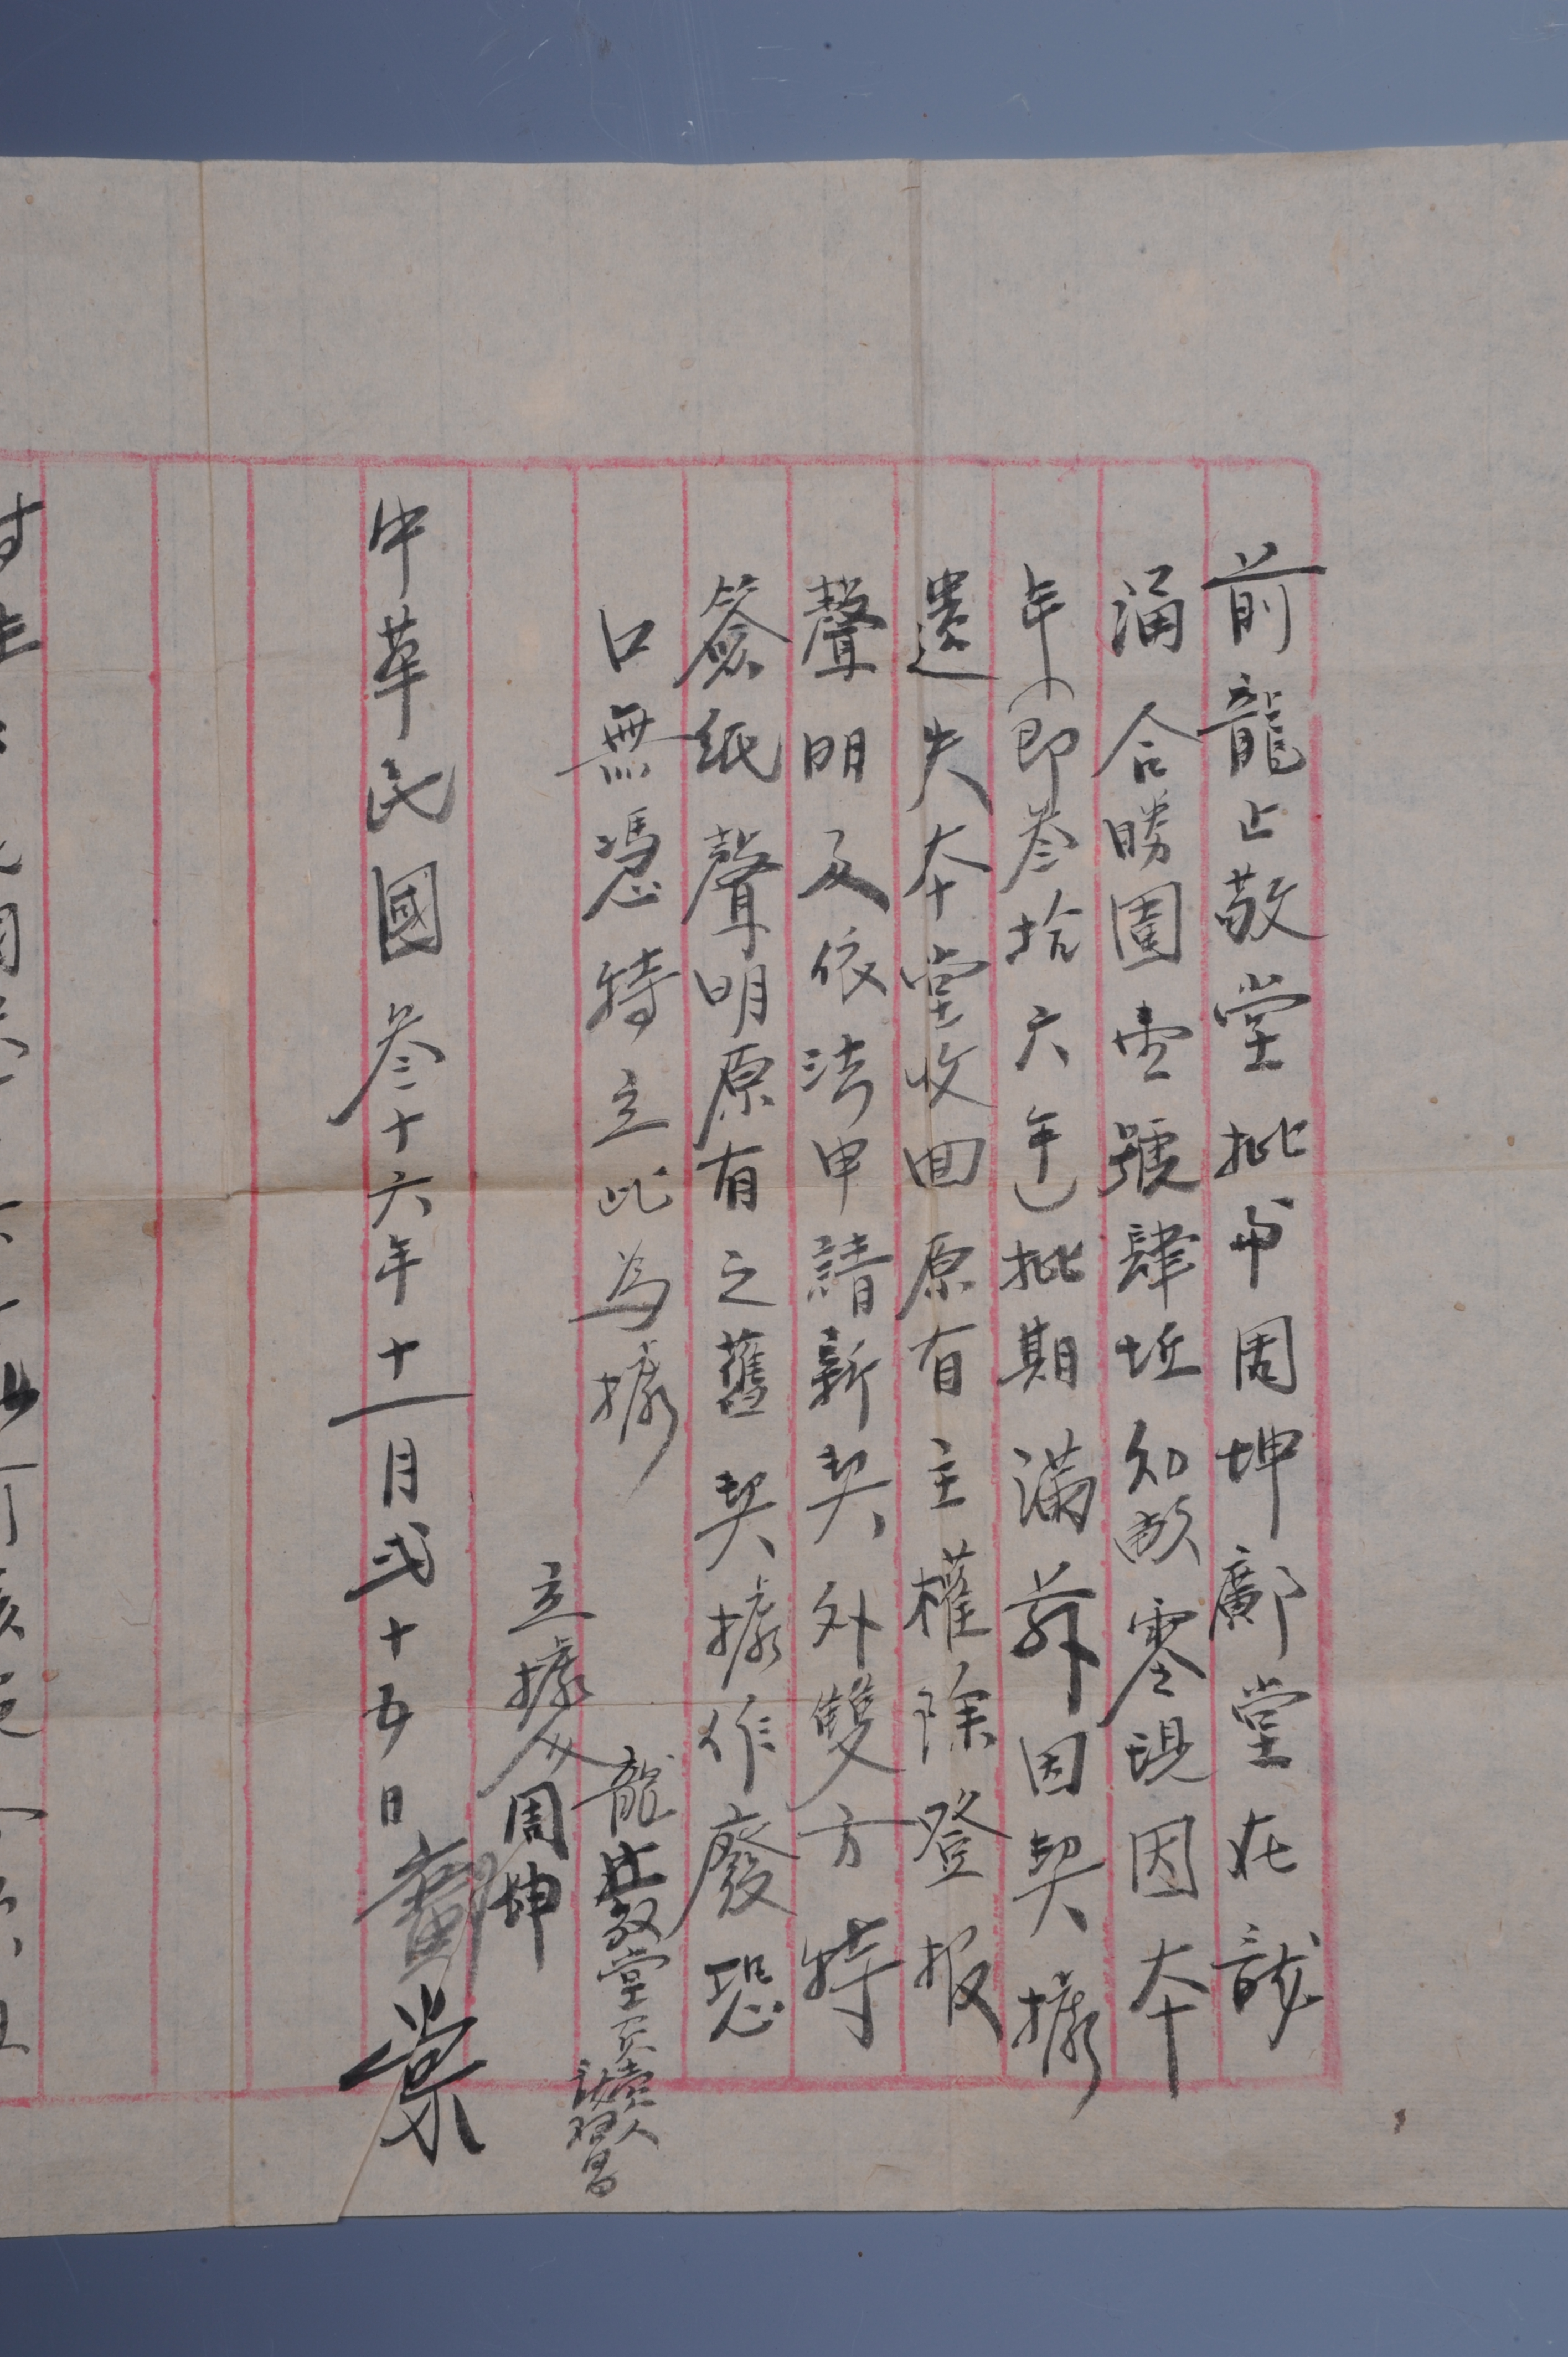 前龍止敬堂批與周坤鄺堂在該
涌合勝圍壹號肆坵知畝零現因本
年(即叁拾六年)批期滿若因契據
遺失本堂收回原有主權除登报
聲明及依法申請新契外雙方特
簽纸聲明原有之舊契據作廢恐
口無憑特立此為據
龍止敬堂
立據人周坤
鄺棠
中華民國叁十六年十一月弍十五日